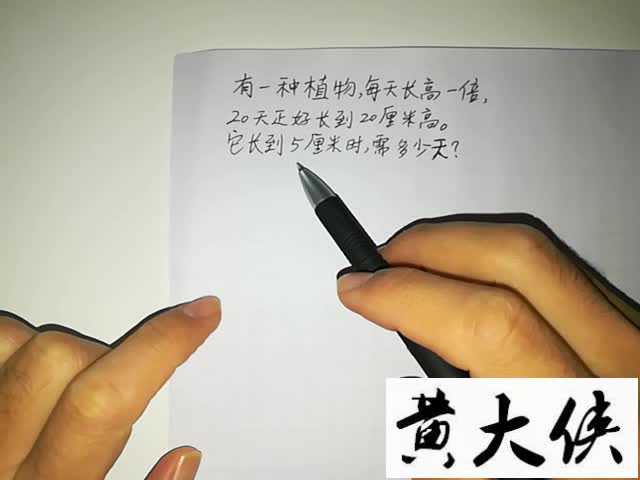 有一种植物,每天长高一倍,
20天正好长到20厘米高。
它长到5厘米时,需多少天?
黄大侠